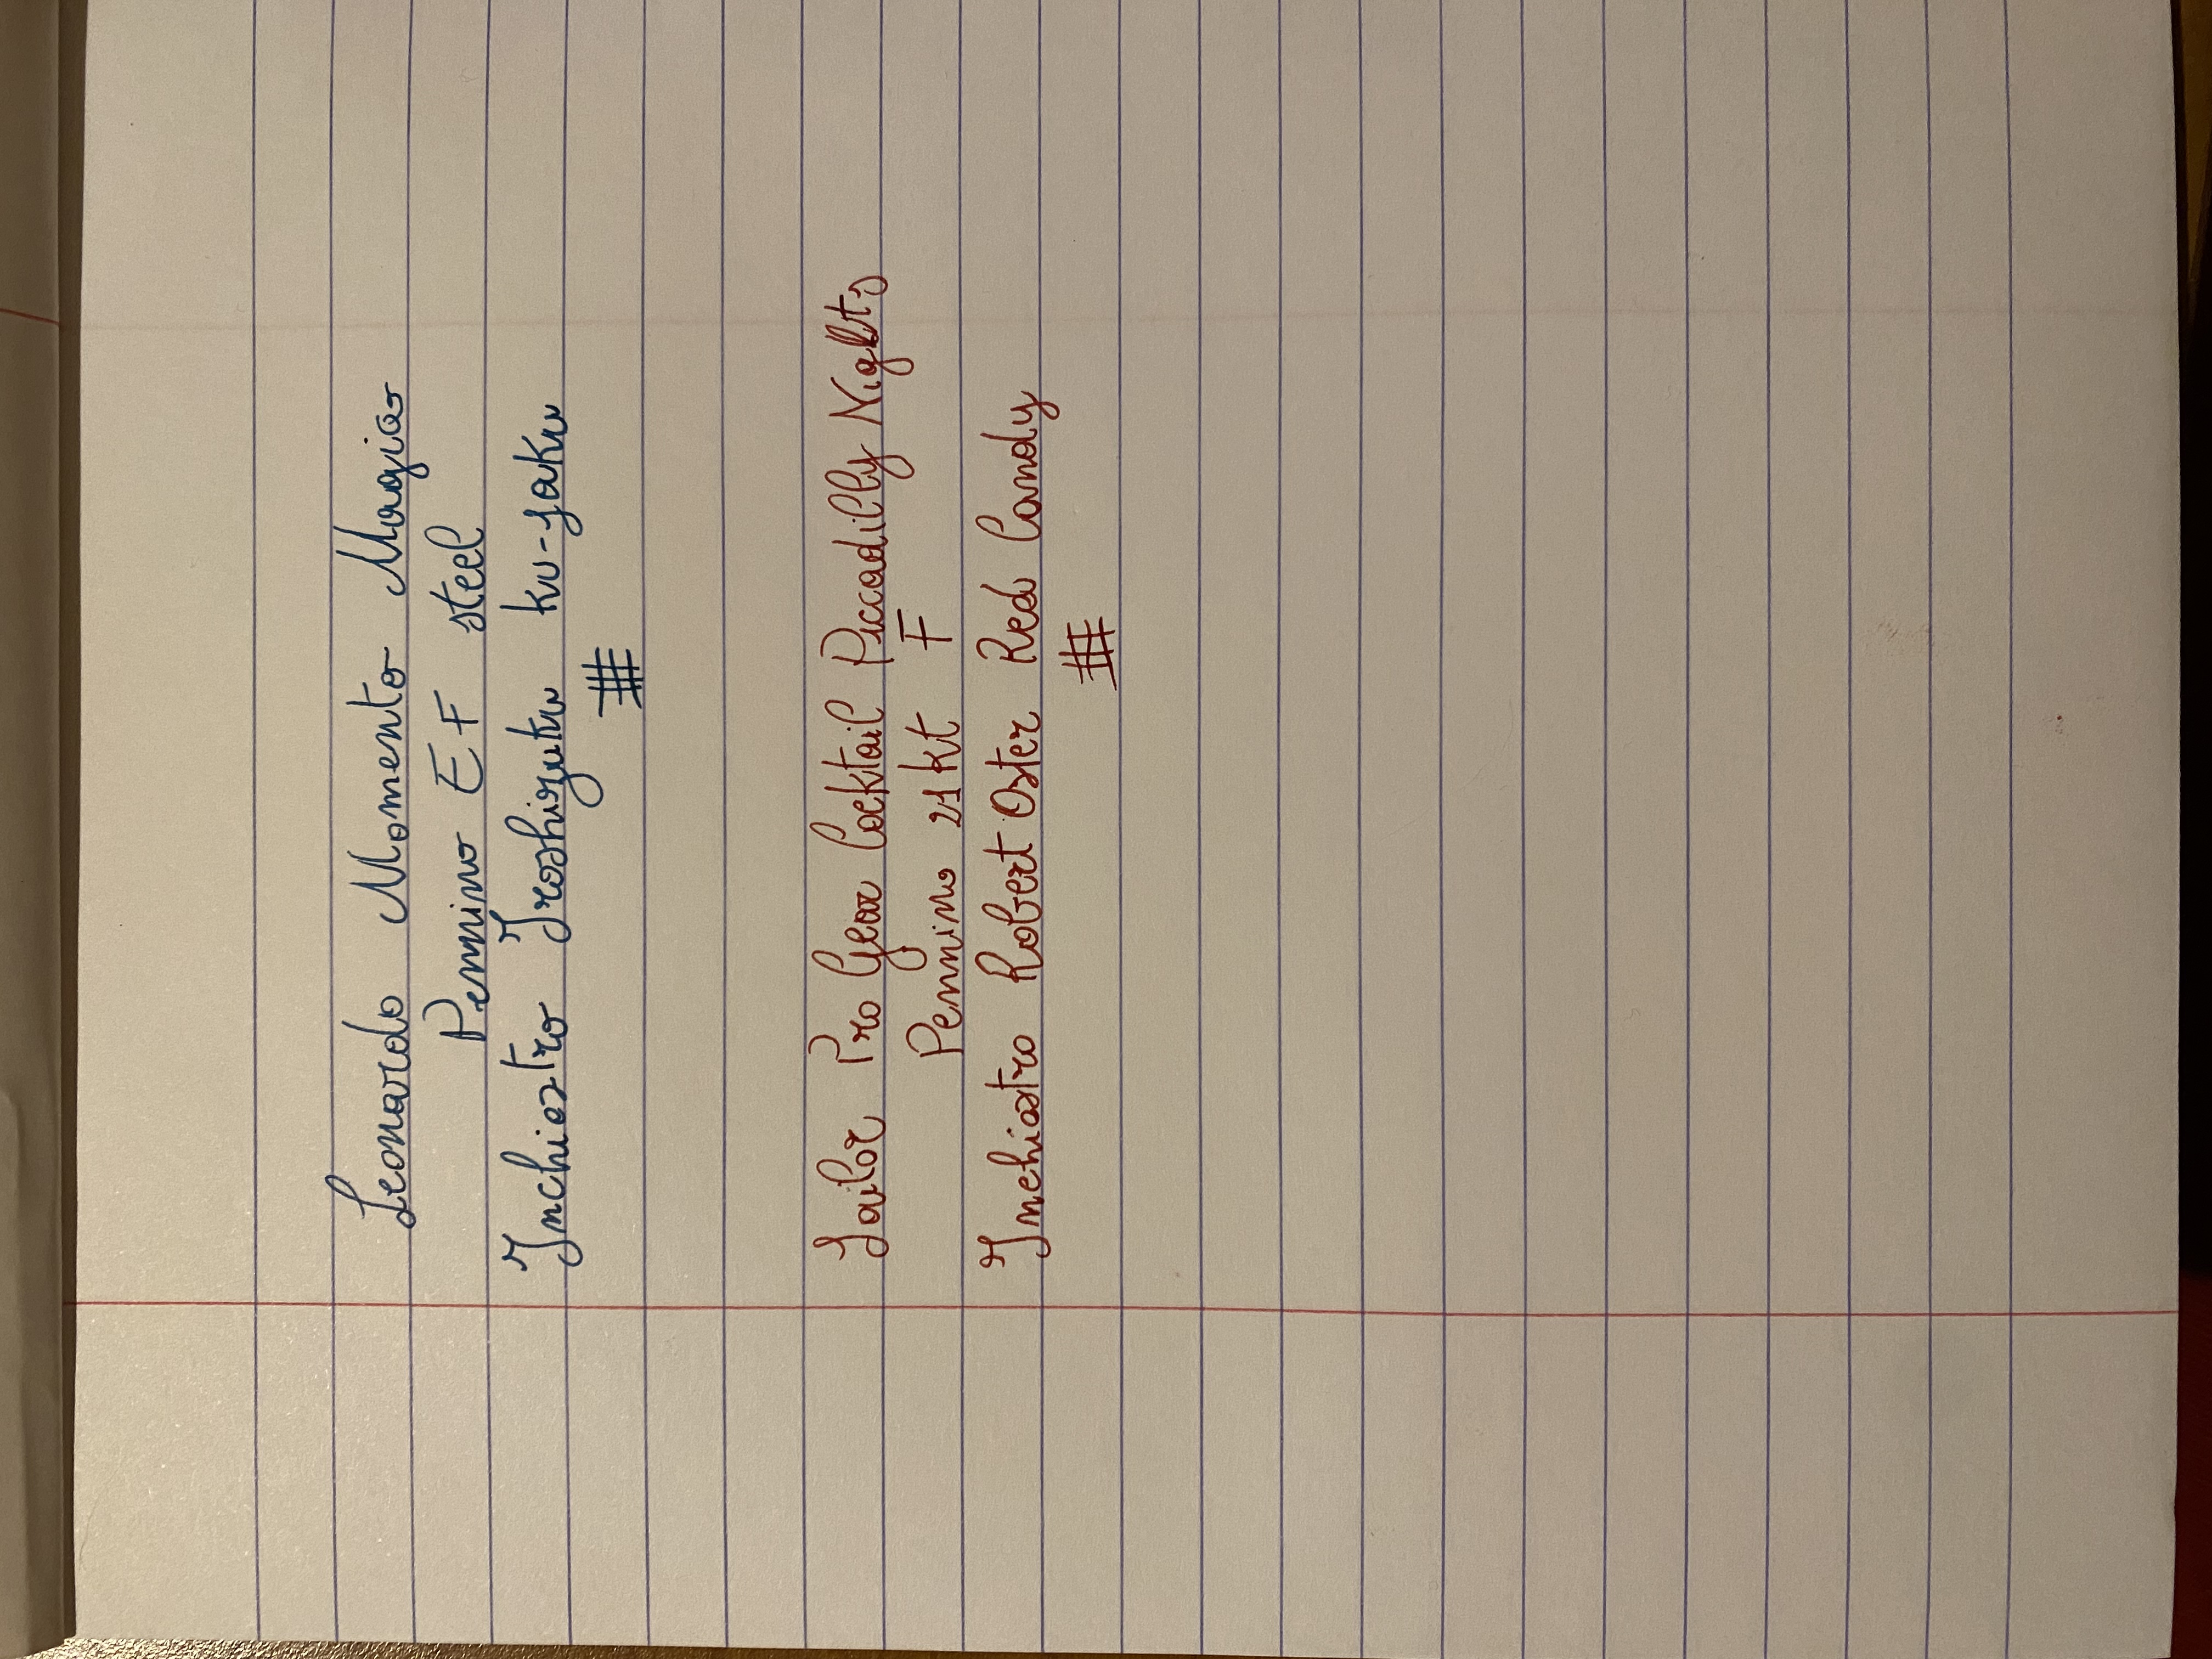 Leonardo Momento Magico
Pennino EF steel
Inchiostro Iroshizuku ku-jaku
#
Sailor Pro Gear Cocktail Piccadilly Night
Pennino 21kt F
Inchiostro Robert Oster Red Candy
#